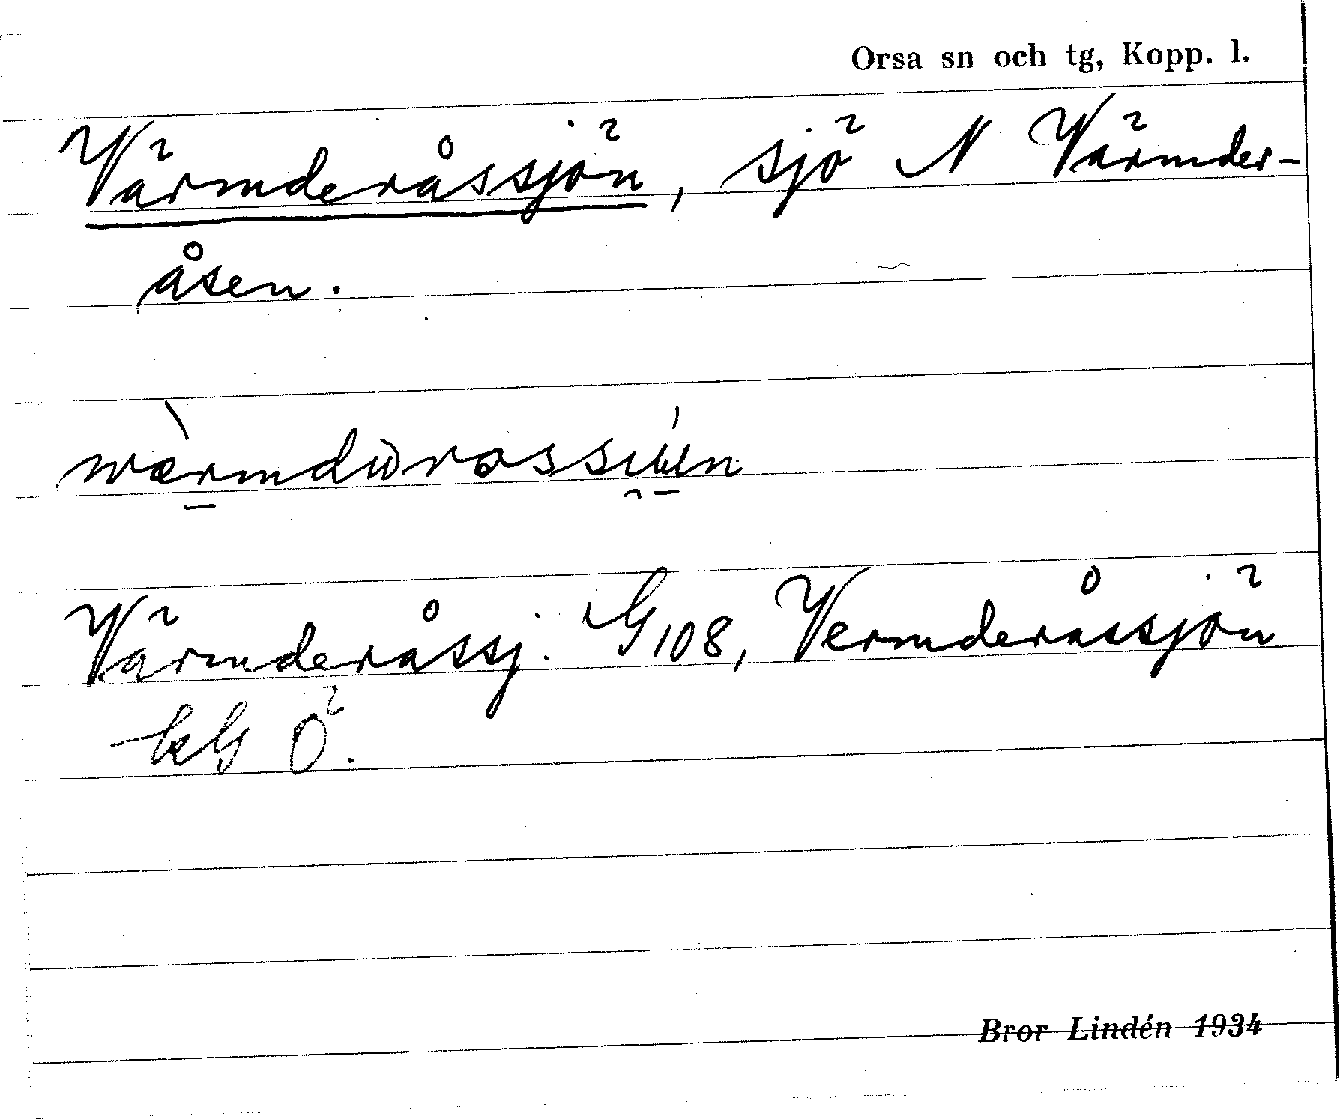 Orsa sn och tg, Kopp. l.
Värmderåssjön, sjö N Värmder-
åsen.
Värmderåssj. G108, Vermderåssjön
Ö.
Bror Lindén 1934